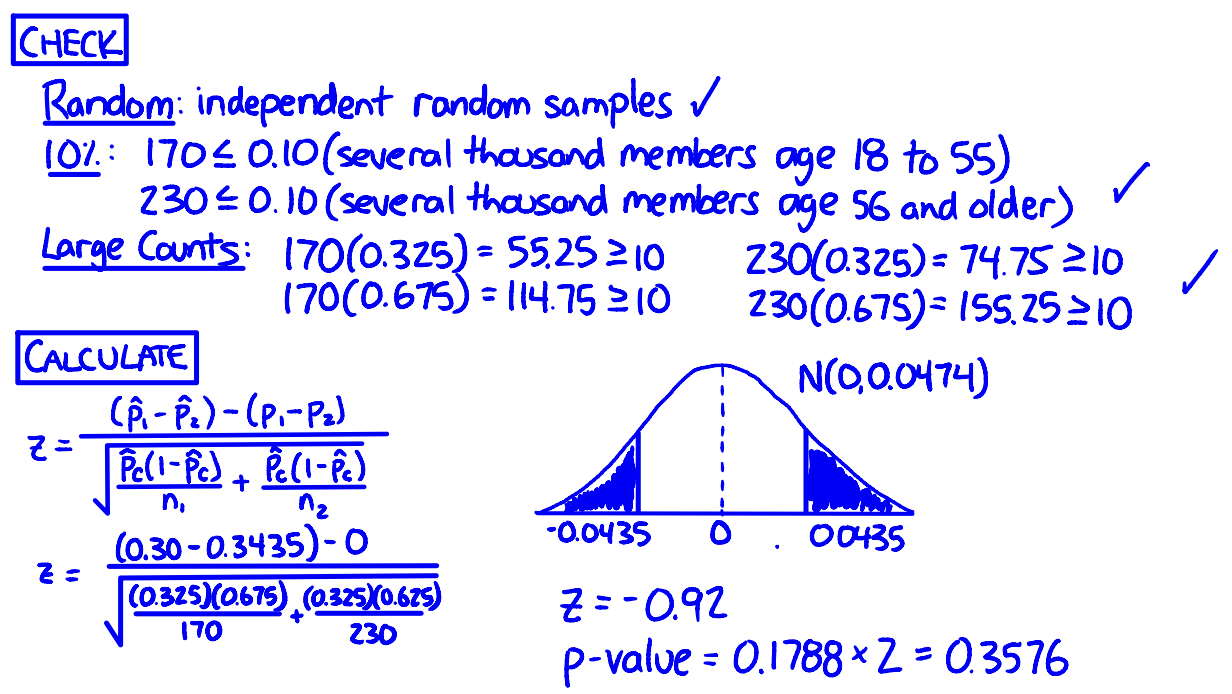 CHECK
Random: independent random samples ✓
10%: 170 ≤ 0.10 (several thousand members age 18 to 55)
230 ≤ 0.10 (several thousand members age 56 and older) ✓
Large Counts: 170(0.325) = 55.25 ≥ 10 230(0.325) = 74.75 ≥ 10
170(0.675) = 114.75 ≥ 10 230(0.675) = 155.25 ≥ 10 ✓
CALCULATE
z = ((p̂₁ - p̂₂) - (p₁ - p₂)) / √(p̂c(1-p̂c)/n₁ + p̂c(1-p̂c)/n₂)
z = ((0.30 - 0.3435) - 0) / √((0.325)(0.675)/170 + (0.325)(0.625)/230)
N(0, 0.0474)
-0.0435 0 . 00435
z = -0.92
p-value = 0.1788 × 2 = 0.3576